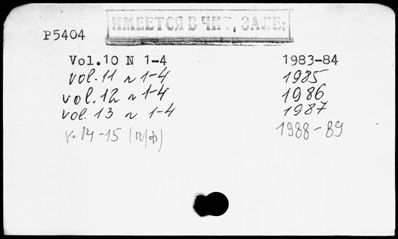 ИМЕЕТСЯ В ЧИТ, ЗАЛЕ:
P5404
Vol.10 N 1-4 1983-84
vol. 11 N 1-4 1985
vol. 12 N 1-4 1986
vol. 13 N 1-4 1987
v. 14-15 (п/ф) 1988-89